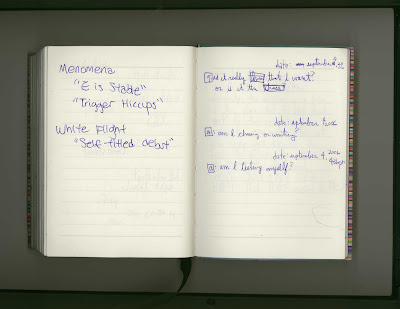 Menomena
"E is Stable"
"Trigger Hiccups"
White Flight
"Self-titled debut"
date: september
is it really that I want?
or is it the
date: september
am I chasing or waiting
date: september 4, 2006
am I testing myself?